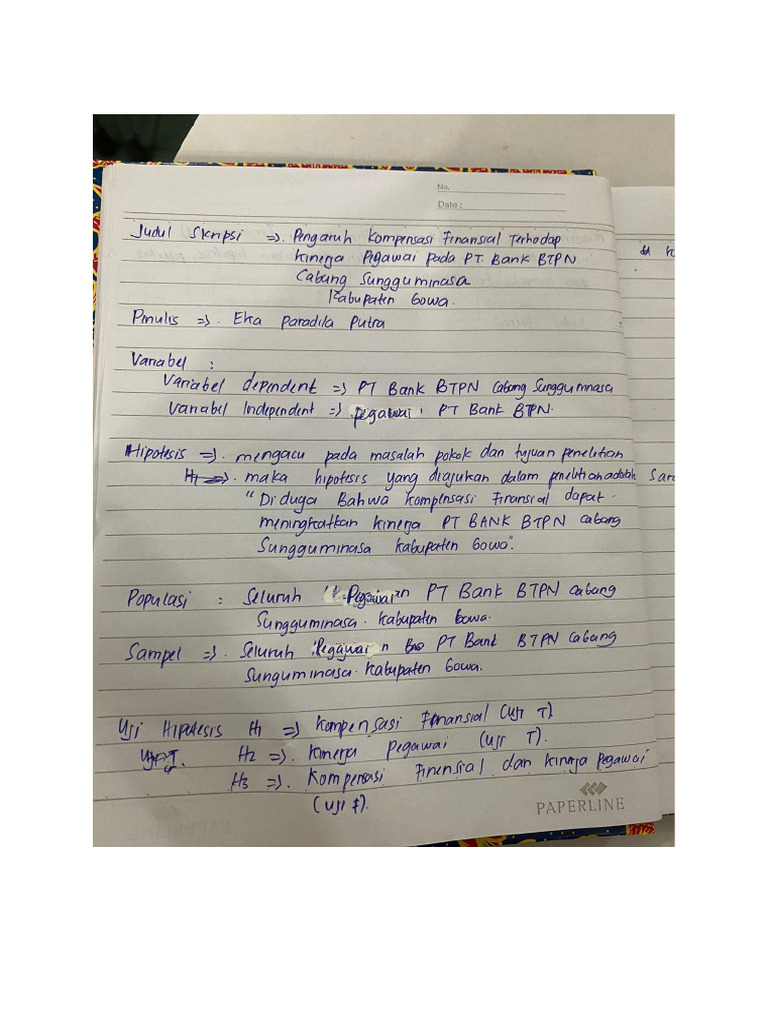 No.
Date :
Judul Skripsi => Pengaruh Kompensasi Finansial Terhadap
Kinerja Pegawai pada PT. Bank BTPN
Cabang Sungguminasa
Kabupaten Gowa.
Penulis =>. Eka Paradila Putra
Variabel :
Variabel dependent => PT Bank BTPN Cabang Sungguminasa
Variabel Independent => pegawai PT Bank BTPN.
Hipotesis =>. mengacu pada masalah pokok dan tujuan penelitian
H1 =>. maka hipotesis yang diajukan dalam penelitian adalah
"Di duga Bahwa kompensasi Finansial dapat
meningkatkan kinerja PT BANK BTPN cabang
Sungguminasa Kabupaten Gowa".
Populasi : Seluruh Pegawai an PT Bank BTPN cabang
Sungguminasa. Kabupaten Gowa.
Sampel =>. Seluruh Pegawai n PT Bank BTPN Cabang
Sunguminasa. Kabupaten Gowa.
Uji Hipotesis H1 => Kompensasi Finansial (Uji T)
H2 =>. Kinerja Pegawai (Uji T).
H3 =>. Kompensasi Finensial dan kinerja pegawai
(Uji F).
PAPERLINE